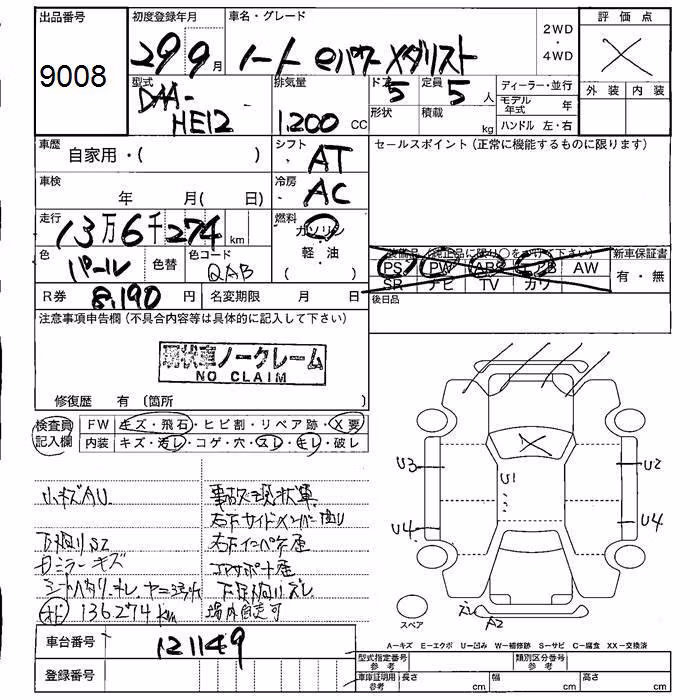 出品番号
9008
初度登録年月
29 9月
車名・グレード
ノート eパワー メダリスト
2WD
・
4WD
評価点
外装 内装
型式
DAA-
HE12
排気量
1200 CC
ドア
5
定員
5 人
形状
積載
kg
ディーラー・並行
モデル年式 年
ハンドル 左・右
車歴
自家用・( )
シフト
AT
車検
年 月( 日)
冷房
AC
走行
13万6千274 km
燃料
ガソリン
・
軽・油
( )
色
パール
色替
色コード
QAB
R券 8,190 円
名変期限 月 日
セールスポイント(正常に機能するものに限ります)
装備品(純正品に限り○をかけて下さい)
PS PW ABS AB AW
SR ナビ TV カワ
新車保証書
有・無
後日品
注意事項申告欄(不具合内容等は具体的に記入して下さい)
現状車ノークレーム
NO CLAIM
修復歴 有 〔箇所 〕
検査員
記入欄
FW キズ・飛石・ヒビ割・リペア跡・X要
内装 キズ・汚レ・コゲ・穴・スレ・キレ・破レ
小キズAU
下廻りS2
ミラーキズ
オド 136274km
事故現状車
右下サイドメンバー曲り
場外自走可
U3
U4
U1
U2
U4
A2
スペア
車台番号
121149
登録番号
A－キズ E－エクボ U－凹み W－補修跡 S－サビ C－腐食 XX－交換済
型式指定番号
参考
類別区分番号
参考
車庫証明用
参考
長さ cm
幅 cm
高さ cm